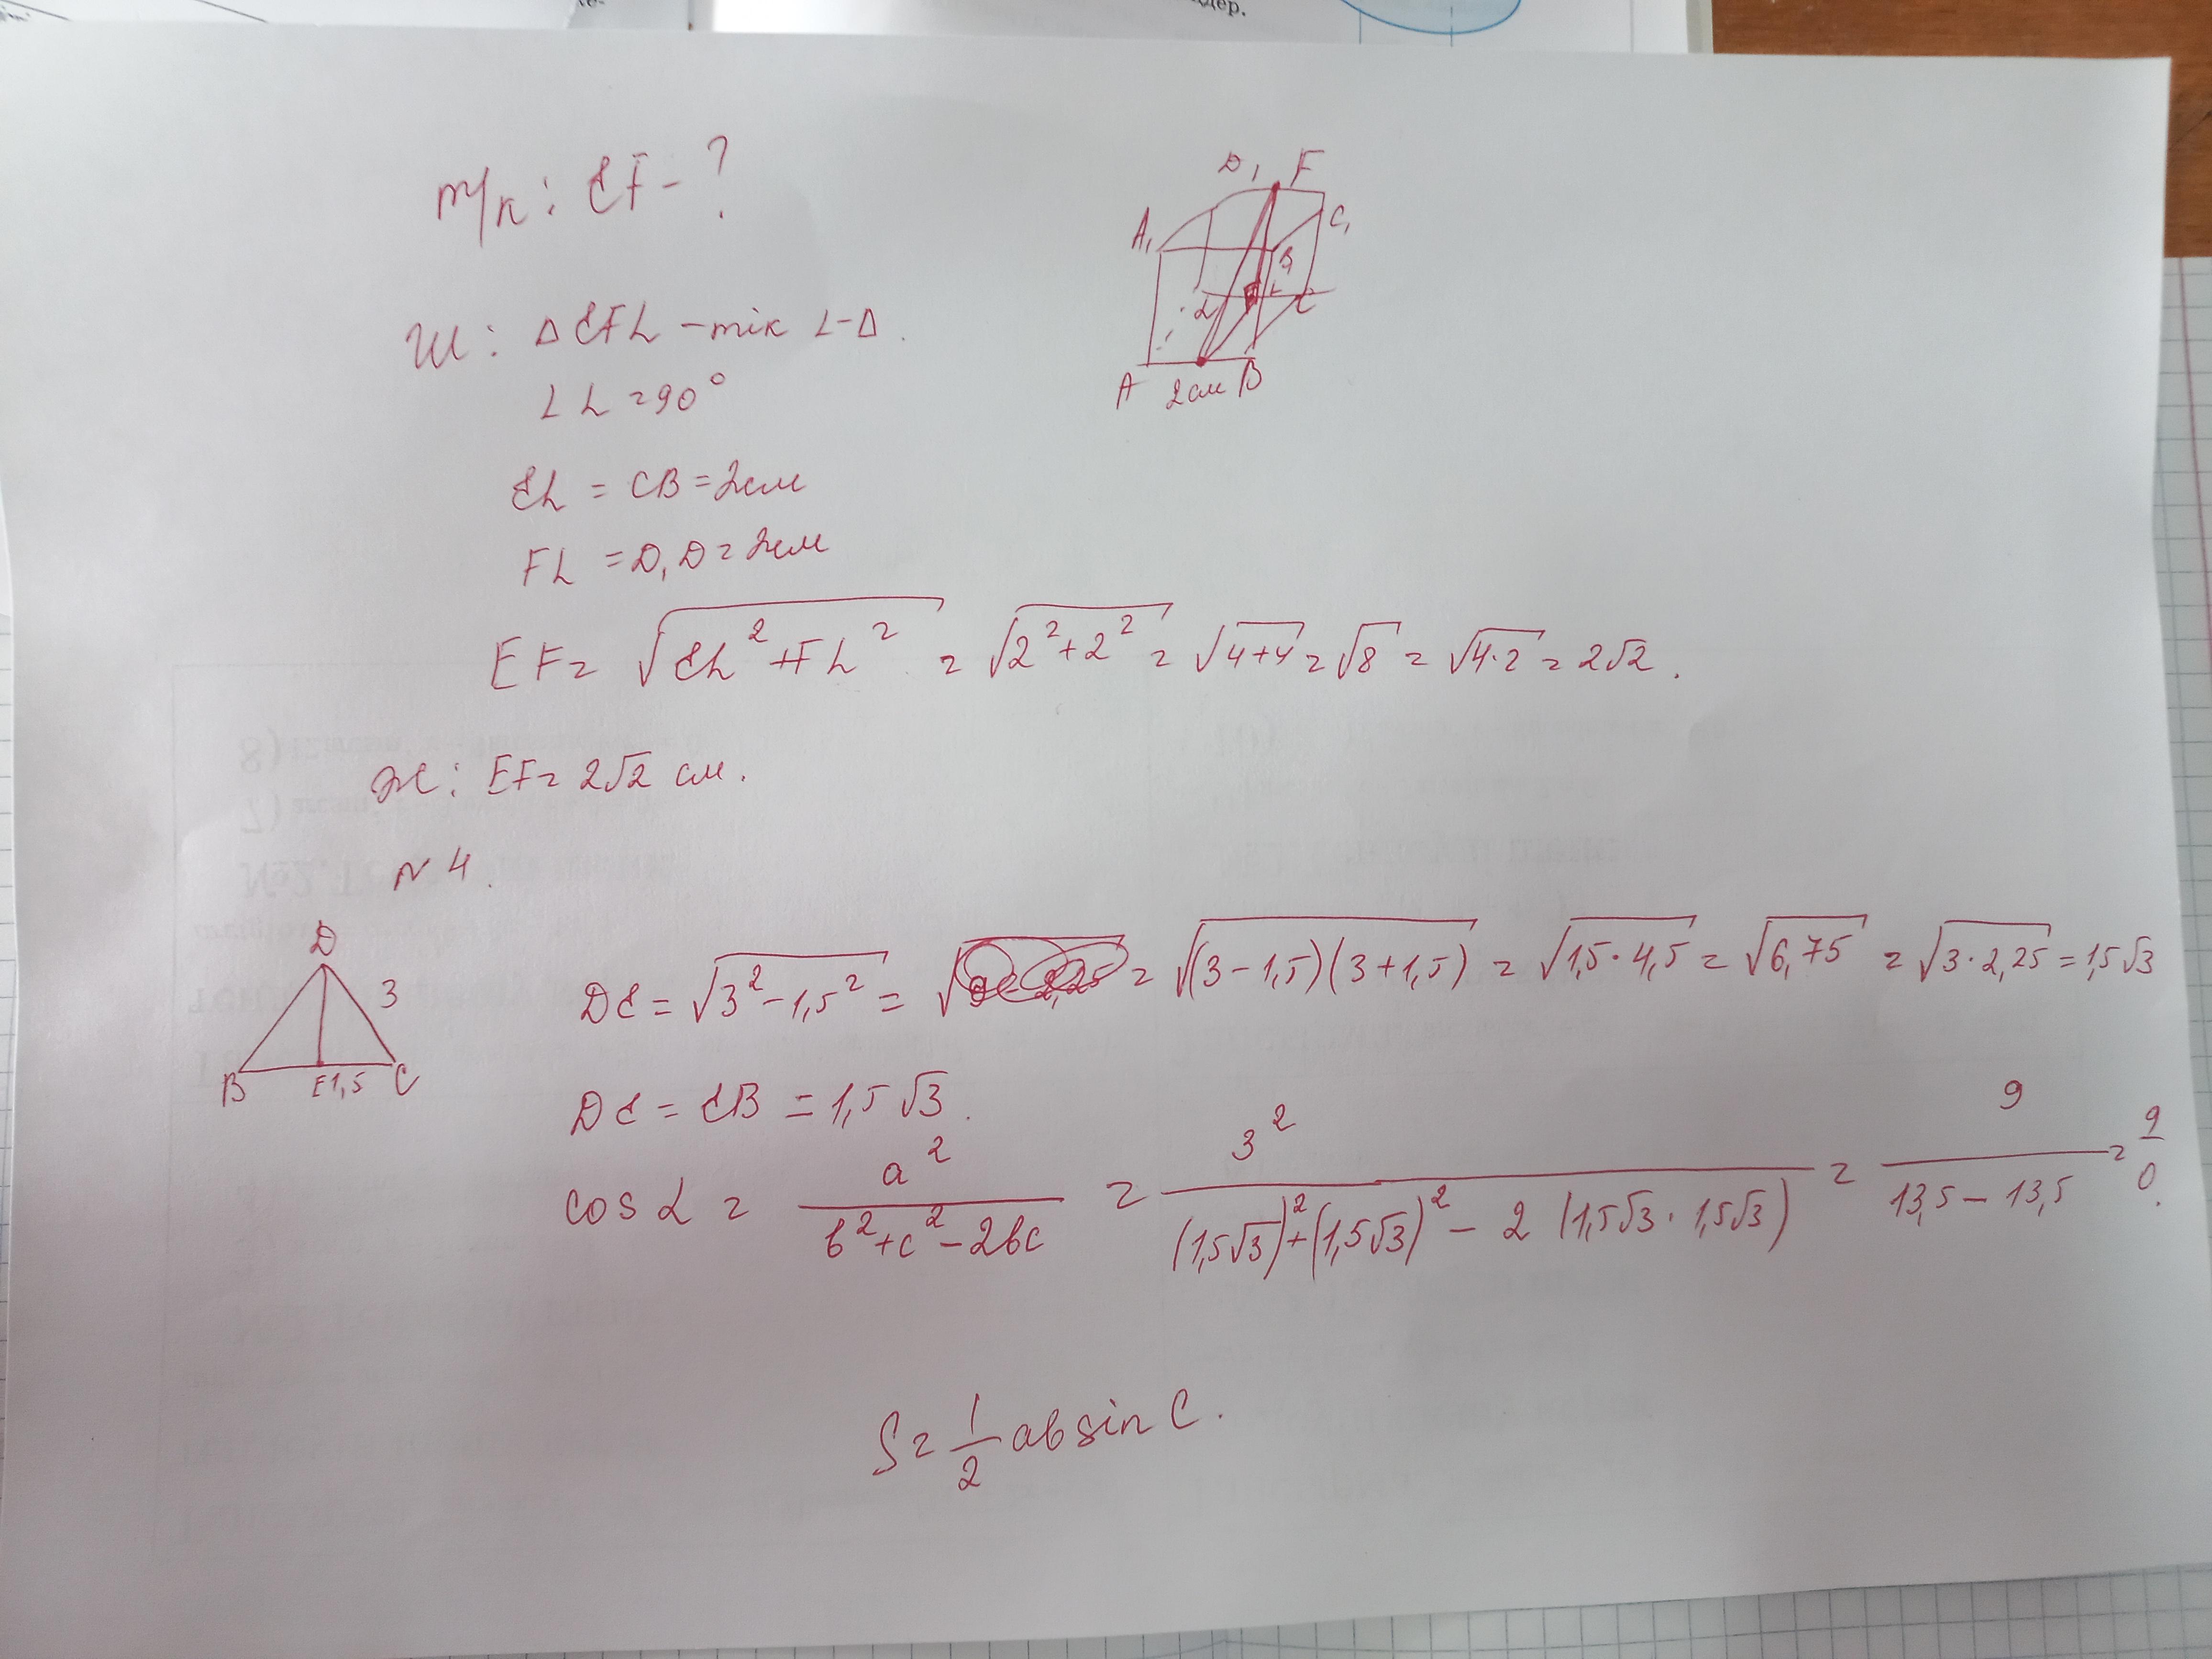 дер.
т/к: EF - ?
D₁ F
A₁ C₁
B₁
L C
A 2см B
Ш: Δ EFL - тік ∟-Δ.
∠L = 90°
EL = CB = 2см
FL = D₁D = 2см
EF = √(EL² + FL²) = √(2² + 2²) = √(4+4) = √8 = √(4·2) = 2√2.
Ж: EF = 2√2 см.
N 4.
D
3
B E 1,5 C
DE = √(3² - 1,5²) = = √((3 - 1,5)(3 + 1,5)) = √(1,5 · 4,5) = √6,75 = √(3 · 2,25) = 1,5√3
DE = EB = 1,5√3.
cos α = a² / (b² + c² - 2bc) = 3² / ((1,5√3)² + (1,5√3)² - 2 (1,5√3 · 1,5√3)) = 9 / (13,5 - 13,5) = 9/0.
S = 1/2 ab sin C.